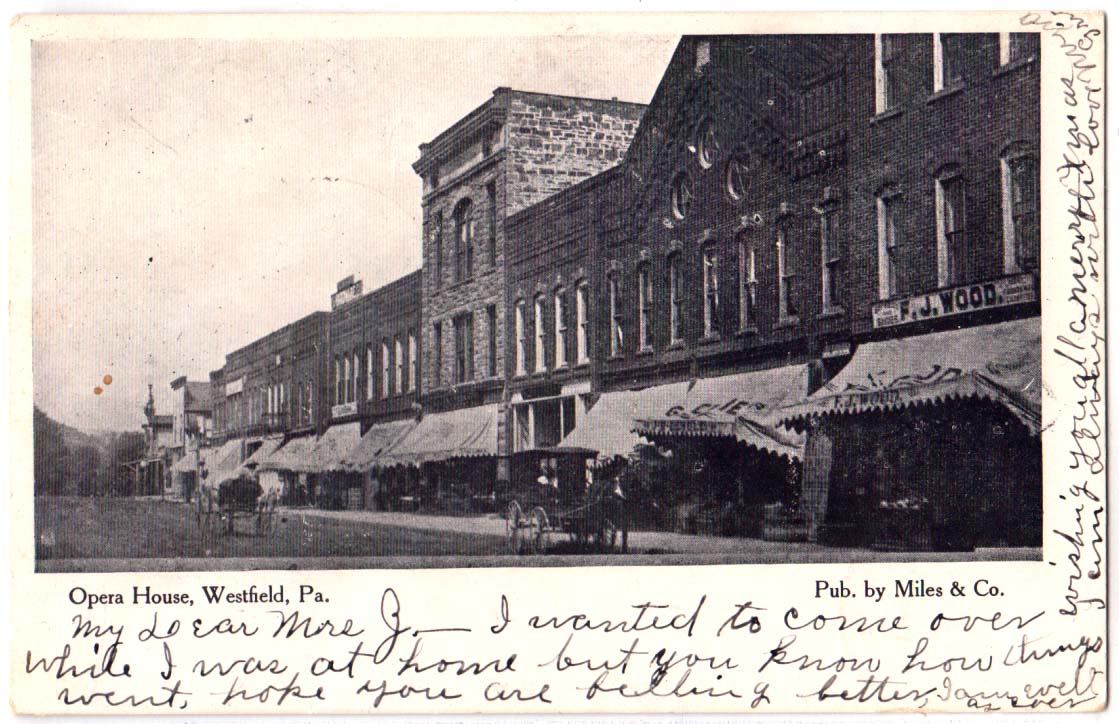 F. J. WOOD.
F.J. WOOD.
Opera House, Westfield, Pa.
Pub. by Miles & Co.
My Dear Mrs J. — I wanted to come over
while I was at home but you know how things
went, hope you are feeling better, I am well
as ever
wishing you all a merry Xmas
with love